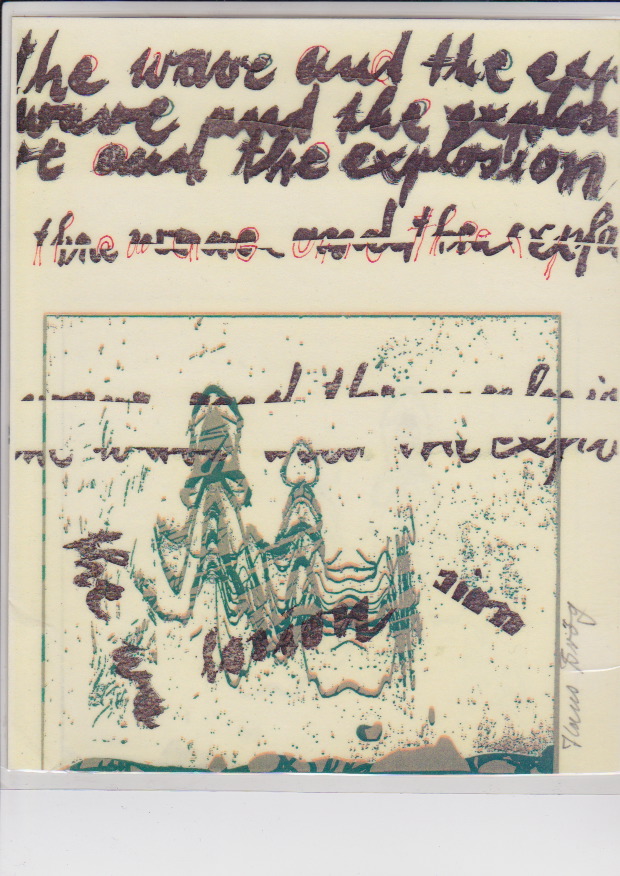 the wave and the exp
wave and the explosi
ve and the explosion
the wave and the explo
and the
the wave and the explo
the
sion
Hans Brög